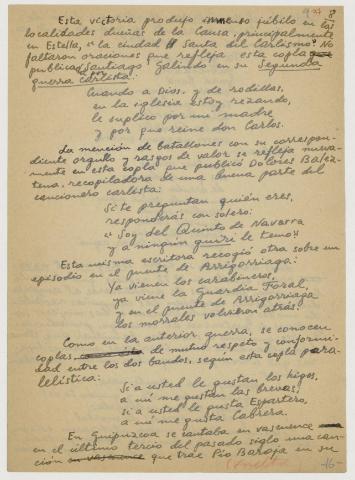 Esta victoria produjo inmenso júbilo en las
localidades dueñas de la Causa, principalmente
en Estella, "la ciudad Santa del Carlismo". No
faltaron oraciones que refleja esta copla
publica Santiago Galindo en su Segunda
guerra carlista:
Cuando a Dios, y de rodillas,
en la iglesia estoy rezando,
le suplico por mi madre
y por que reine don Carlos.
La mención de batallones con su correspon-
diente orgullo y rasgos de valor se refleja nueva-
mente en esta copla que publicó Dolores Balez-
tena, recopiladora de una buena parte del
cancionero carlista:
Si te preguntan quién eres,
responderás con salero:
"Soy del Quinto de Navarra
y a ningún guiri le temo".
Esta misma escritora recogió otra sobre un
episodio en el puente de Arrigorriaga:
Ya vienen los carabineros,
ya viene la Guardia Foral,
y en el puente de Arrigorriaga
los morrales volvieron atrás.
Como en la anterior guerra, se conocen
coplas de mutuo respeto y conformi-
dad entre los dos bandos, según esta copla para-
lelística:
Si a usted le gustan los higos,
a mí me gustan las brevas;
si a usted le gusta Espartero,
a mí me gusta Cabrera.
En Guipúzcoa se cantaba en vascuence
en el último tercio del pasado siglo una can-
ción que trae Pío Baroja en su
-16-